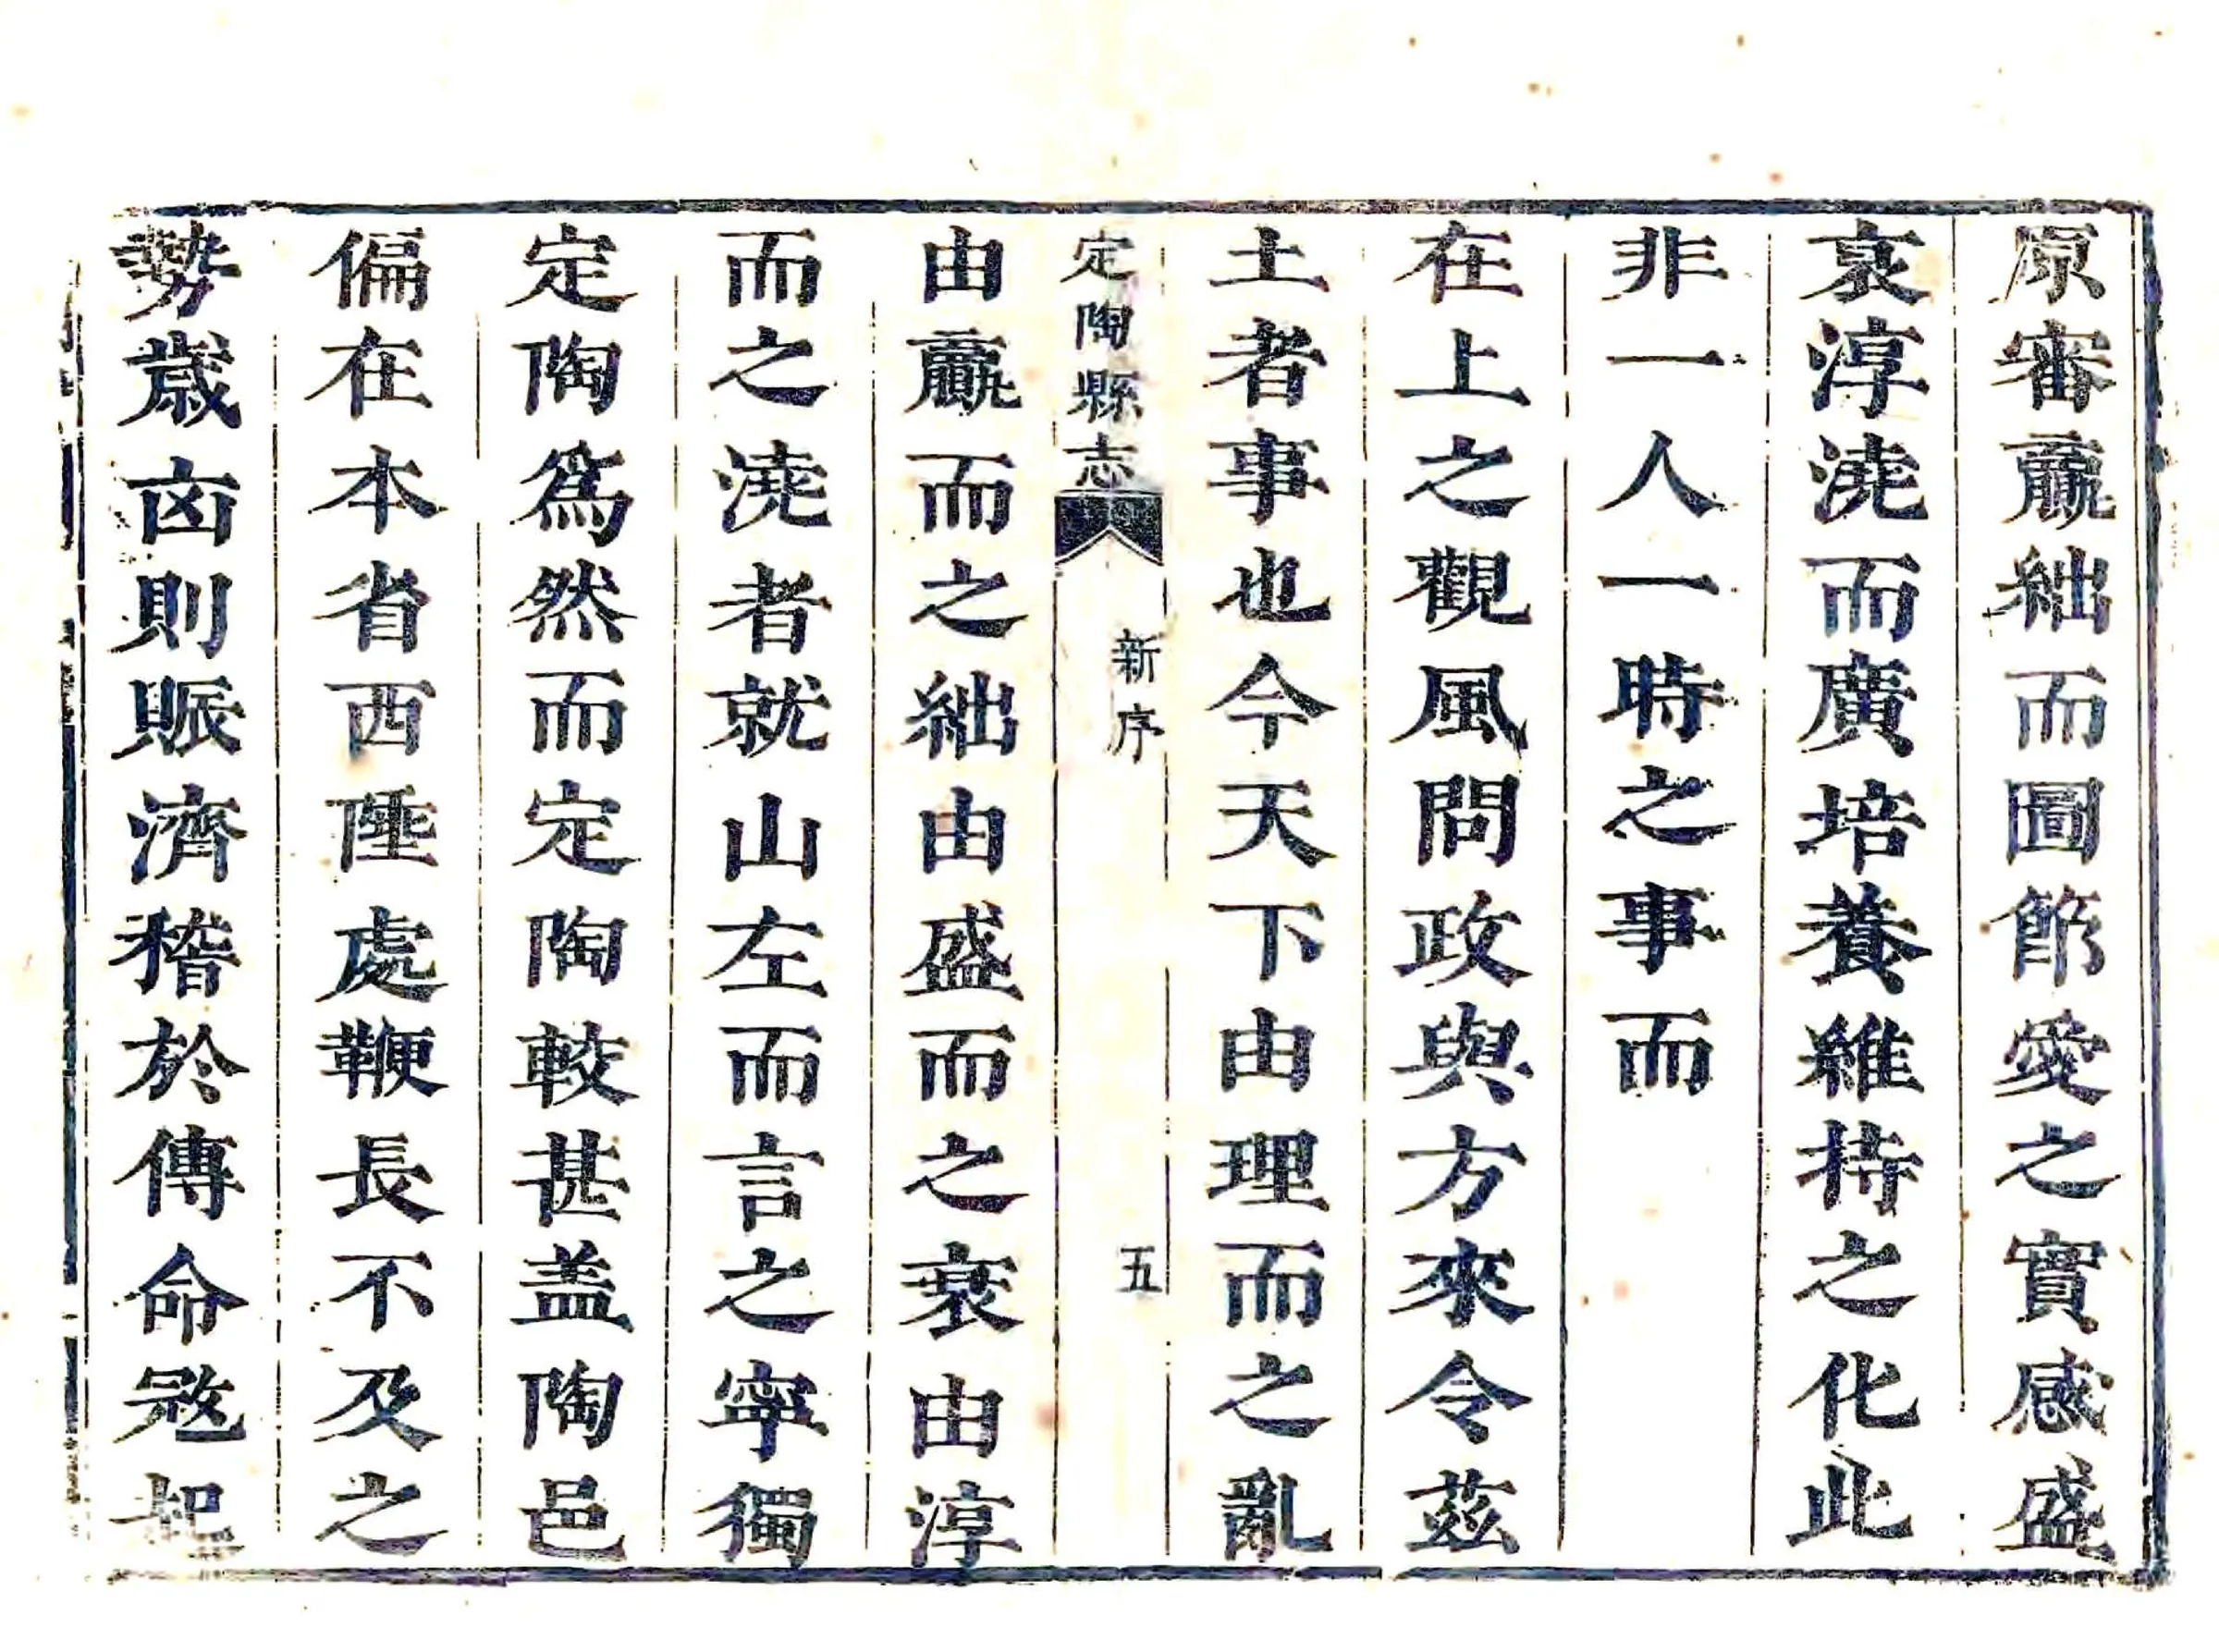 原審羸絀而圖節愛之實感盛
衰淳澆而廣培養維持之化此
非一人一時之事而
在上之觀風問政與方來令茲
土者事也今天下由理而之亂
定陶縣志
新序
五
由羸而之絀由盛而之衰由淳
而之澆者就山左而言之寧獨
定陶爲然而定陶較甚盖陶邑
偏在本省西陲處鞭長不及之
勢歲㐫則賑濟稽於傳命冦起